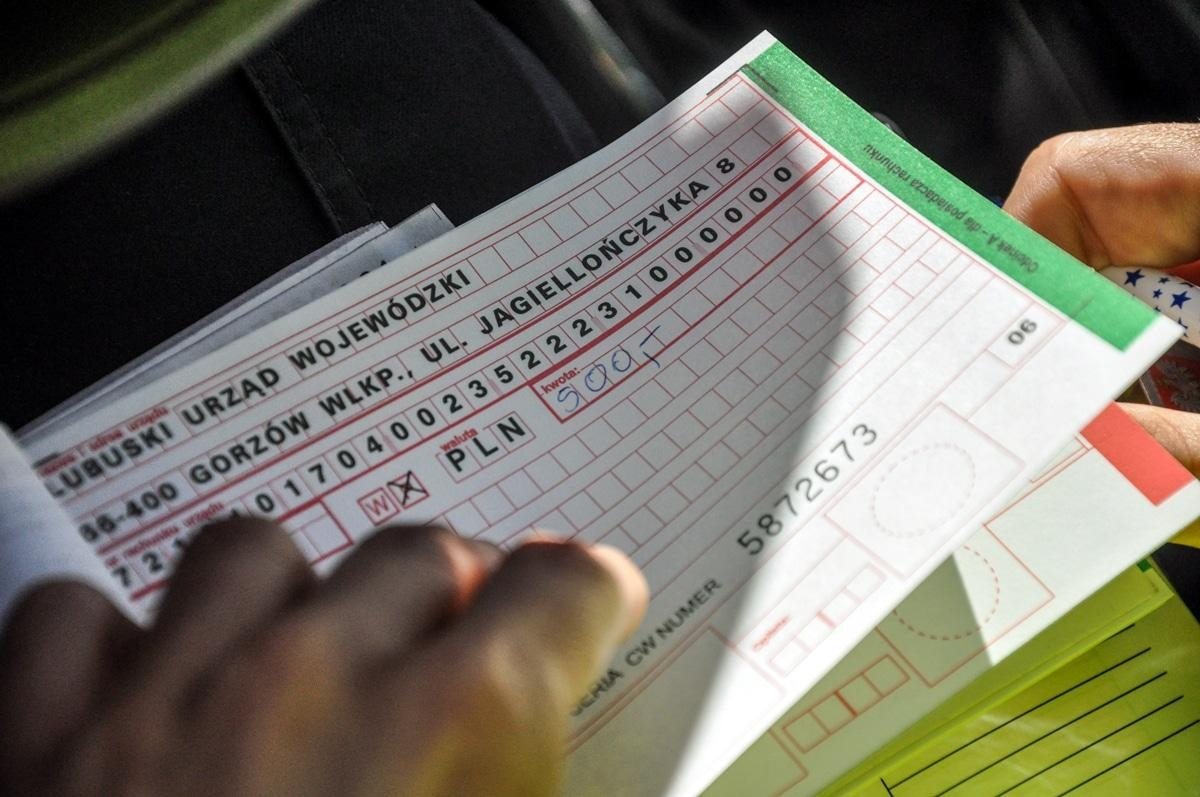 Odcinek A - dla posiadacza rachunku
adres urzędu
LUBUSKI URZĄD WOJEWÓDZKI
66-400 GORZÓW WLKP., UL. JAGIELLOŃCZYKA 8
nr rachunku urzędu
721 017040023522231000000
W X
waluta
PLN
kwota:
500,-
06
SERIA CW NUMER 5872673
Opłata: